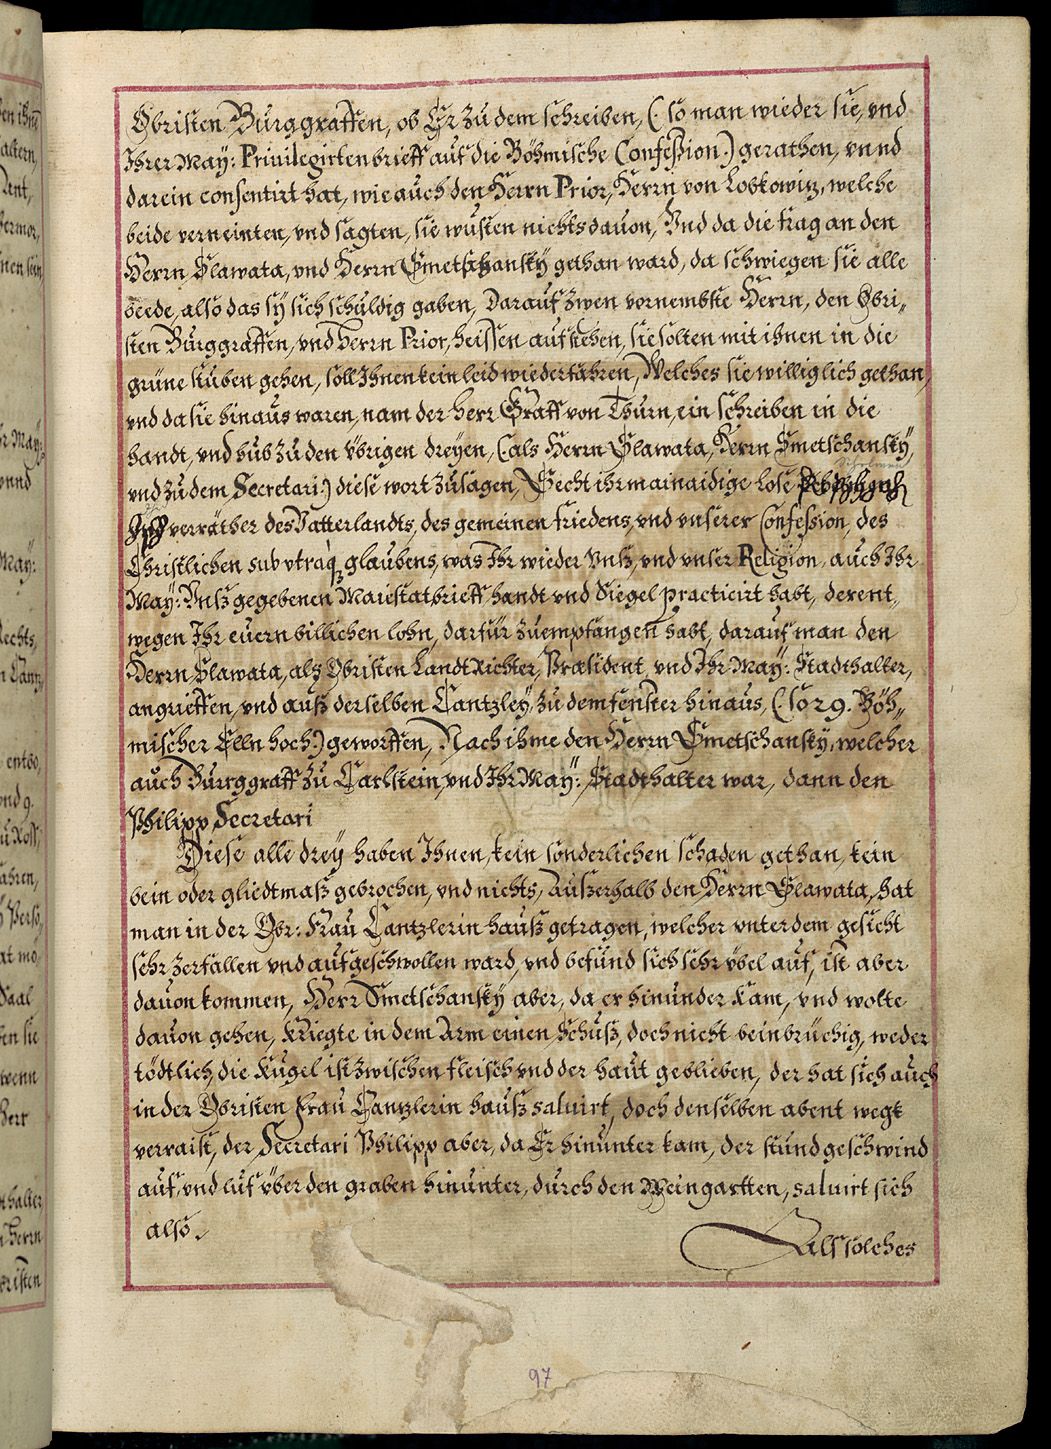 Obristen Burggraffen, ob Er zu dem schreiben, (so man wieder sie, vnd
Ihrer May: Priuilegirten brieff auf die Böhmische Confession.) gerathen, vnnd
darein consentirt hat, wie auch den Herrn Prior, Herrn von Lobkowitz, welche
beide verneinten, vnd sagten, sie wusten nichts dauon, Vnd da die frag an den
Herrn Slawata, vnd Herrn Smetschansky gethan ward, da schwiegen sie alle
beede, also das sy sich schuldig gaben, Darauf zwen vornembste Herrn, den Obri„
sten Burggraffen, vnd Herrn Prior, heissen aufstehen, sie solten mit ihnen in die
grüne stuben gehen, soll Ihnen kein leid wiederfahren, Welches sie williglich gethan,
vnd da sie hinaus waren, nam der Herr Graff von Thurn, ein schreiben in die
handt, vnd hub zu den übrigen dreyen, (als Herrn Slawata, Herrn Smetschansky,
vnd zu dem Secretari.) diese wort zusagen, Secht ihr mainaidige lose
verräther des Vatterlandts, des gemeinen friedens, vnd vnserer Confession, des
Christlichen sub vtraq glaubens, was Ihr wieder Vnß, vnd vnser Religion, auch Ihr
May: Vnß gegebenen Maiestatbrieff handt vnd Siegel practicirt habt, derent„
wegen Ihr euern billichen lohn, darfür zuempfangen habt, darauf man den
Herrn Slawata, alß Obristen Landt Richter, Præsident, vnd Ihr May: Stadthalter,
angrieffen, vnd auß derselben Cantzley, zu dem fenster hinaus, (so 29. Böh„
mischer Elln hoch.) geworffen, Nach ihme den Herrn Smetschansky, welcher
auch Burggraff zu Carlstein, vnd Ihr May: Stadthalter war, dann den
Philipp Secretari
Diese alle drey haben Ihnen, kein sonderlichen schaden gethan, kein
bein oder gliedtmaß gebrochen, vnd nichts, Außerhalb den Herrn Slawata, hat
man in der Obr: Frau Cantzlerin hauß getragen, welcher vnter dem gesicht
sehr zerfallen vnd aufgeschwollen ward, vnd befund sich sehr übel auf, ist aber
dauon kommen, Herr Smetschansky aber, da er hinunder kam, vnd wolte
dauon gehen, kriegte in dem Arm einen Schuß, doch nicht beinbrüchig, weder
tödtlich, die kugel ist zwischen fleisch vnd der haut geblieben, der hat sich auch
in der Obristen Frau Cantzlerin hauß saluirt, doch denselben abent wegk
verraist, der Secretari Philipp aber, da Er hinunter kam, der stund geschwind
auf, vnd luf über den graben hinunter, durch den Weingartten, saluirt sich
also.
Als solches
97